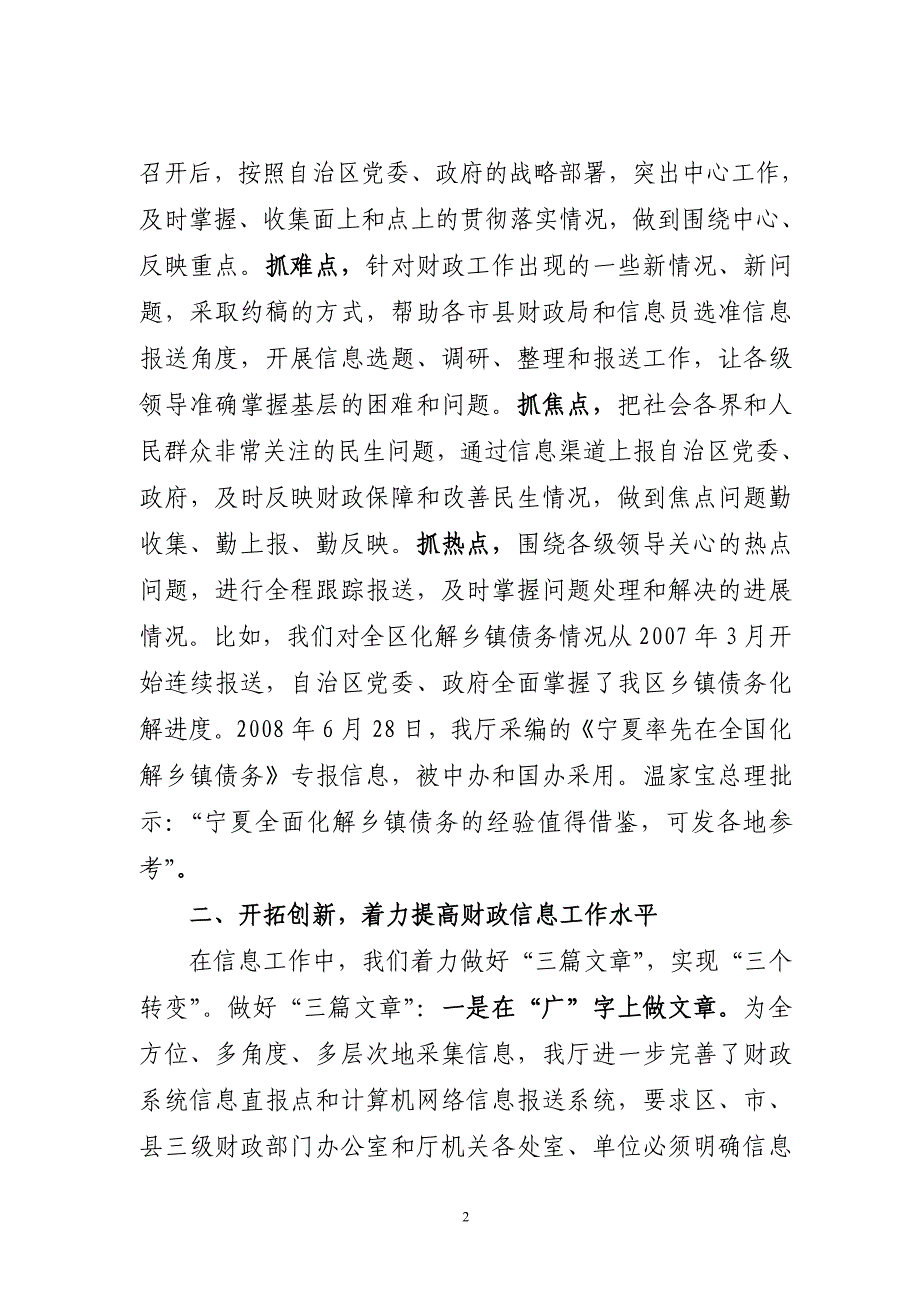 召开后，按照自治区党委、政府的战略部署，突出中心工作，
及时掌握、收集面上和点上的贯彻落实情况，做到围绕中心、
反映重点。抓难点，针对财政工作出现的一些新情况、新问
题，采取约稿的方式，帮助各市县财政局和信息员选准信息
报送角度，开展信息选题、调研、整理和报送工作，让各级
领导准确掌握基层的困难和问题。抓焦点，把社会各界和人
民群众非常关注的民生问题，通过信息渠道上报自治区党委、
政府，及时反映财政保障和改善民生情况，做到焦点问题勤
收集、勤上报、勤反映。抓热点，围绕各级领导关心的热点
问题，进行全程跟踪报送，及时掌握问题处理和解决的进展
情况。比如，我们对全区化解乡镇债务情况从 2007 年 3 月开
始连续报送，自治区党委、政府全面掌握了我区乡镇债务化
解进度。2008 年 6 月 28 日，我厅采编的《宁夏率先在全国化
解乡镇债务》专报信息，被中办和国办采用。温家宝总理批
示：“宁夏全面化解乡镇债务的经验值得借鉴，可发各地参
考”。
二、开拓创新，着力提高财政信息工作水平
在信息工作中，我们着力做好“三篇文章”，实现“三个
转变”。做好“三篇文章”：一是在“广”字上做文章。为全
方位、多角度、多层次地采集信息，我厅进一步完善了财政
系统信息直报点和计算机网络信息报送系统，要求区、市、
县三级财政部门办公室和厅机关各处室、单位必须明确信息
2